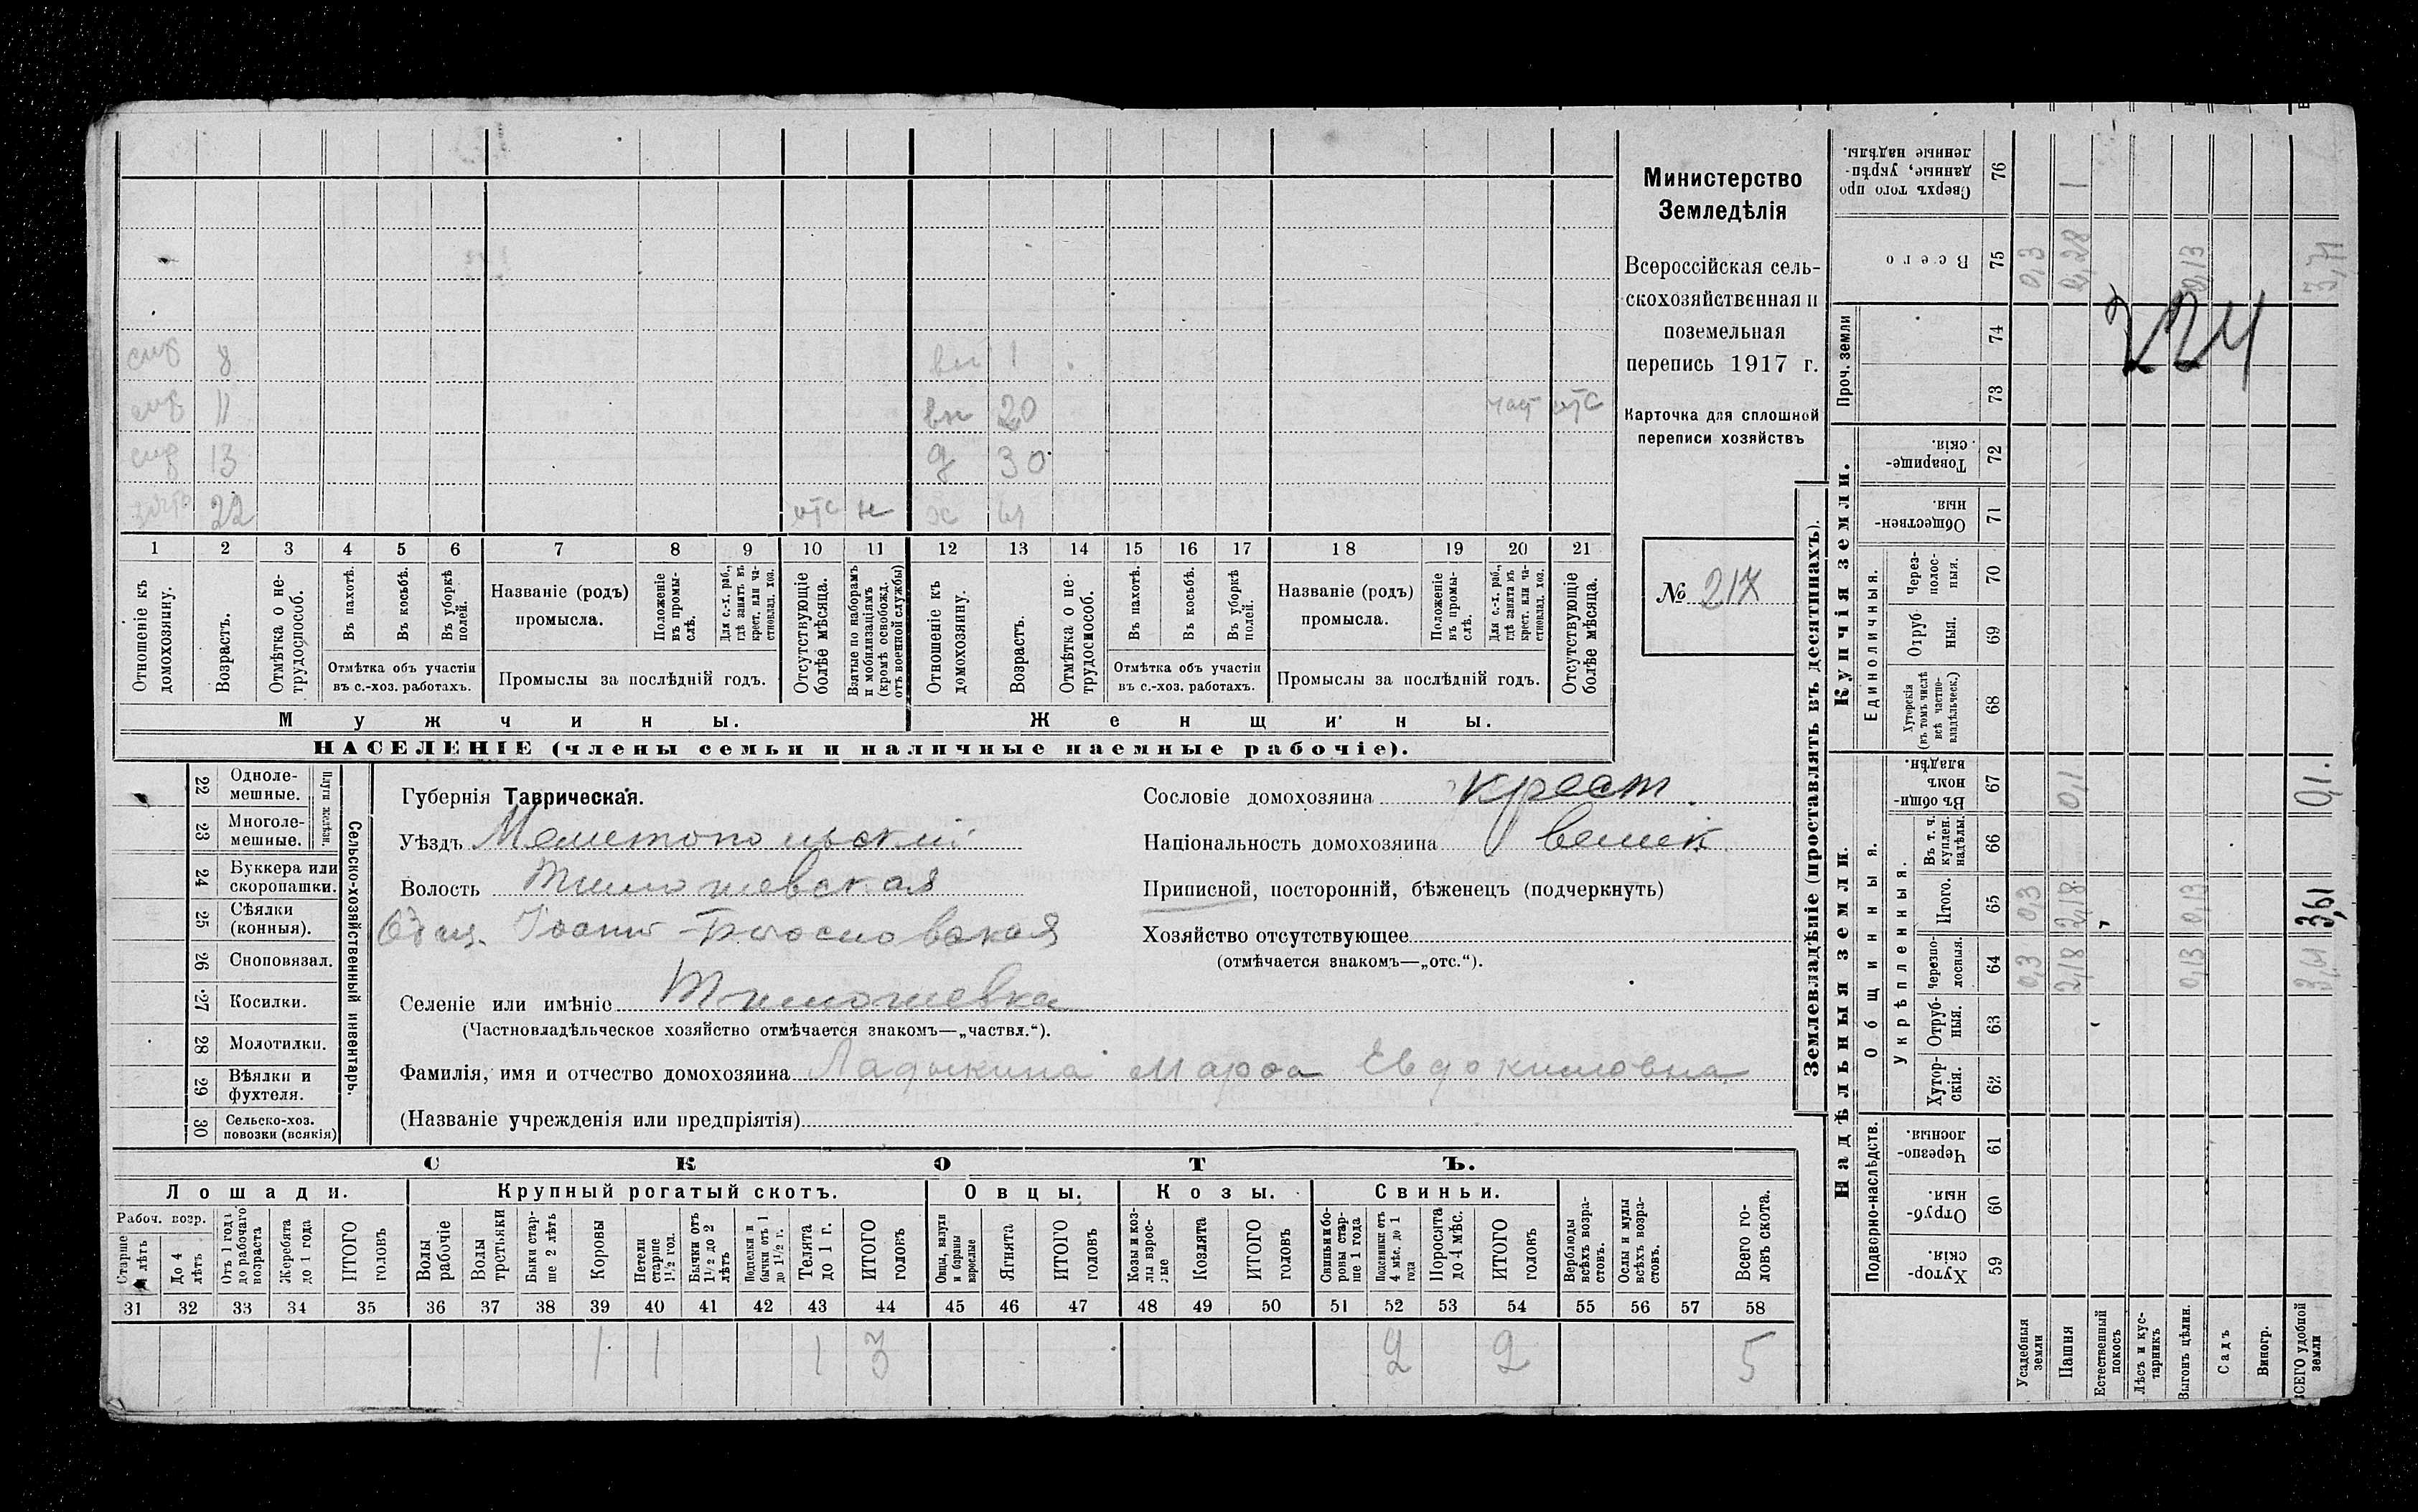 Министерство
Земледѣлія
Всероссійская сель-
скохозяйственная и
поземельная
перепись 1917 г.
Карточка для сплошной
переписи хозяйствъ
№ 217
224
8 вн 1
11 вн 20 отс
13 д 30
22 отс н ж
1 2 3 4 5 6 7 8 9 10 11 12 13 14 15 16 17 18 19 20 21
Отношеніе къ домохозяину.
Возрастъ.
Отмѣтка о не-трудоспособ.
Въ пахотѣ.
Въ косьбѣ.
Въ уборкѣ полей.
Отмѣтка объ участіи
въ с.-хоз. работахъ.
Названіе (родъ)
промысла.
Положеніе въ промы-слѣ.
Для с.-х. раб., гдѣ занятъ въ крест. или ча-стновлад. хоз.
Промыслы за послѣдній годъ.
Отсутствующіе болѣе мѣсяца.
Взятые по наборамъ и мобилизаціямъ (кромѣ освобожд. отъ военной службы)
Отношеніе къ домохозяину.
Возрастъ.
Отмѣтка о не-трудоспособ.
Въ пахотѣ.
Въ косьбѣ.
Въ уборкѣ полей.
Отмѣтка объ участіи
въ с.-хоз. работахъ.
Названіе (родъ)
промысла.
Положеніе въ промы-слѣ.
Для с.-х. раб., гдѣ занята въ крест. или ча-стновлад. хоз.
Промыслы за послѣдній годъ.
Отсутствующіе болѣе мѣсяца.
Мужчины. Женщины.
НАСЕЛЕНІЕ (члены семьи и наличные наемные рабочіе).
22 Одноле-мешные.
23 Многоле-мешные.
Плуги желѣзн.
24 Буккера или скоропашки.
25 Сѣялки (конныя).
26 Сноповязал.
27 Косилки.
28 Молотилки.
29 Вѣялки и фухтеля.
30 Сельско-хоз. повозки (всякія)
Сельско-хозяйственный инвентарь.
Губернія Таврическая.
Уѣздъ Мелитопольскій
Волость Тимошевская
Общ. Іоанно-Богословская
Селеніе или имѣніе Тимошевка
(Частновладѣльческое хозяйство отмѣчается знакомъ—„частвл.“).
Фамилія, имя и отчество домохозяина Ладыкина Марфа Евдокимовна
(Названіе учрежденія или предпріятія)
Сословіе домохозяина крест.
Національность домохозяина велик.
Приписной, посторонній, бѣженецъ (подчеркнуть)
Хозяйство отсутствующее
(отмѣчается знакомъ—„отс.“).
СКОТЪ.
Лошади. Крупный рогатый скотъ. Овцы. Козы. Свиньи.
Рабоч. возр.
Старше 4 лѣтъ
До 4 лѣтъ
Отъ 1 года до рабочаго возраста
Жеребята до 1 года
ИТОГО головъ
Волы рабочіе
Волы третьяки
Быки стар-ше 2 лѣтъ
Коровы
Нетели старше 1½ год.
Бычки отъ 1½ до 2 лѣтъ
Подтелки и бычки отъ 1 до 1½ г.
Телята до 1 г.
ИТОГО головъ
Овцы, валухи и бараны взрослые
Ягнята
ИТОГО головъ
Козы и коз-лы взрос-лые
Козлята
ИТОГО головъ
Свиньи и бо-ровы стар-ше 1 года
Подсвинки отъ 4 мѣс. до 1 года
Поросята до 4 мѣс.
ИТОГО головъ
Верблюды всѣхъ возра-стовъ.
Ослы и мулы всѣхъ возра-стовъ.
Всего го-ловъ скота.
31 32 33 34 35 36 37 38 39 40 41 42 43 44 45 46 47 48 49 50 51 52 53 54 55 56 57 58
1 1 1 3 2 2 5
Землевладѣніе (проставлять въ десятинахъ).
Надѣльныя земли.
Купчія земли.
Проч. земли
Подворно-наслѣдств.
Общинныя.
Укрѣпленныя.
Единоличныя.
Хутор-скія. 59
Отруб-ныя. 60
Черезпо-лосныя. 61
Хутор-скія. 62
Отруб-ныя. 63
Черезпо-лосныя. 64
Итого. 65
Въ т. ч. куплен. надѣлы. 66
Въ общи-номъ владѣн. 67
Хуторскія (въ томъ числѣ всѣ частно-владѣльческ.) 68
Отруб ныя. 69
Через-полос-ныя. 70
Обществен-ныя 71
Товарище-скія. 72
73
74
Всего 75
Сверхъ того про данные, укрѣп-ленные надѣлы. 76
Усадебныя земли 0,3 0,3 0,3
Пашня 2,18 2,18 0,1 2,28 1
Естественный покосъ
Лѣсъ и кус-тарникъ
Выгонъ цѣлин. 0,13 0,13 0,13
Садъ
Виногр.
ВСЕГО удобной земли 3,61 3,61 0,1. 3,71